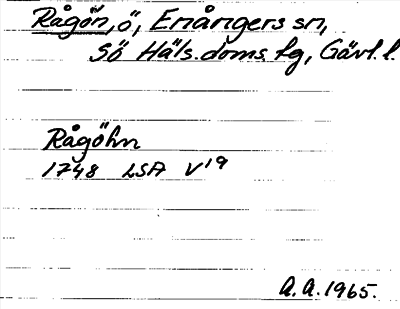 Rågön, ö, Enångers sn,
Sö Häls. doms. tg, Gävl. l.
Rågöhn
1748 LSA V19
A.A. 1965.